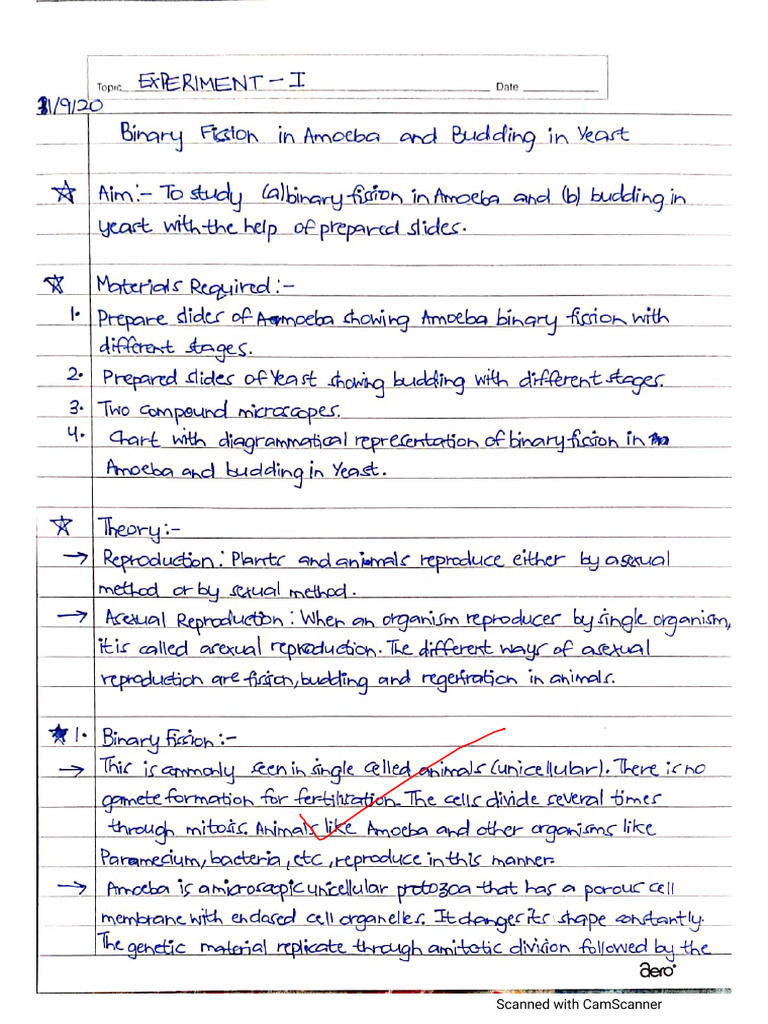 Topic EXPERIMENT - I Date
31/9/20
Binary Fission in Amoeba and Budding in Yeast
☆ Aim:- To study (a) binary fission in Amoeba and (b) budding in
yeast with the help of prepared slides.
☆ Materials Required:-
1. Prepare slides of Amoeba showing Amoeba binary fission with
different stages.
2. Prepared slides of Yeast showing budding with different stages.
3. Two compound microscopes.
4. Chart with diagrammatical representation of binary fission in
Amoeba and budding in Yeast.
☆ Theory:-
→ Reproduction: Plants and animals reproduce either by asexual
method or by sexual method.
→ Asexual Reproduction: When an organism reproduces by single organism,
it is called asexual reproduction. The different ways of asexual
reproduction are fission, budding and in animals.
★ 1. Binary fission:-
→ This is commonly seen in single celled animals (unicellular). There is no
gamete formation for fertilisation. The cells divide several times
through mitosis. Animals like Amoeba and other organisms like
Paramesium, bacteria, etc, reproduce in this manner.
→ Amoeba is a microscopic unicellular protozoa that has a porous cell
membrane with enclosed cell organelles. It changes its shape constantly.
The genetic material replicate through amitotic division followed by the
aero
Scanned with CamScanner